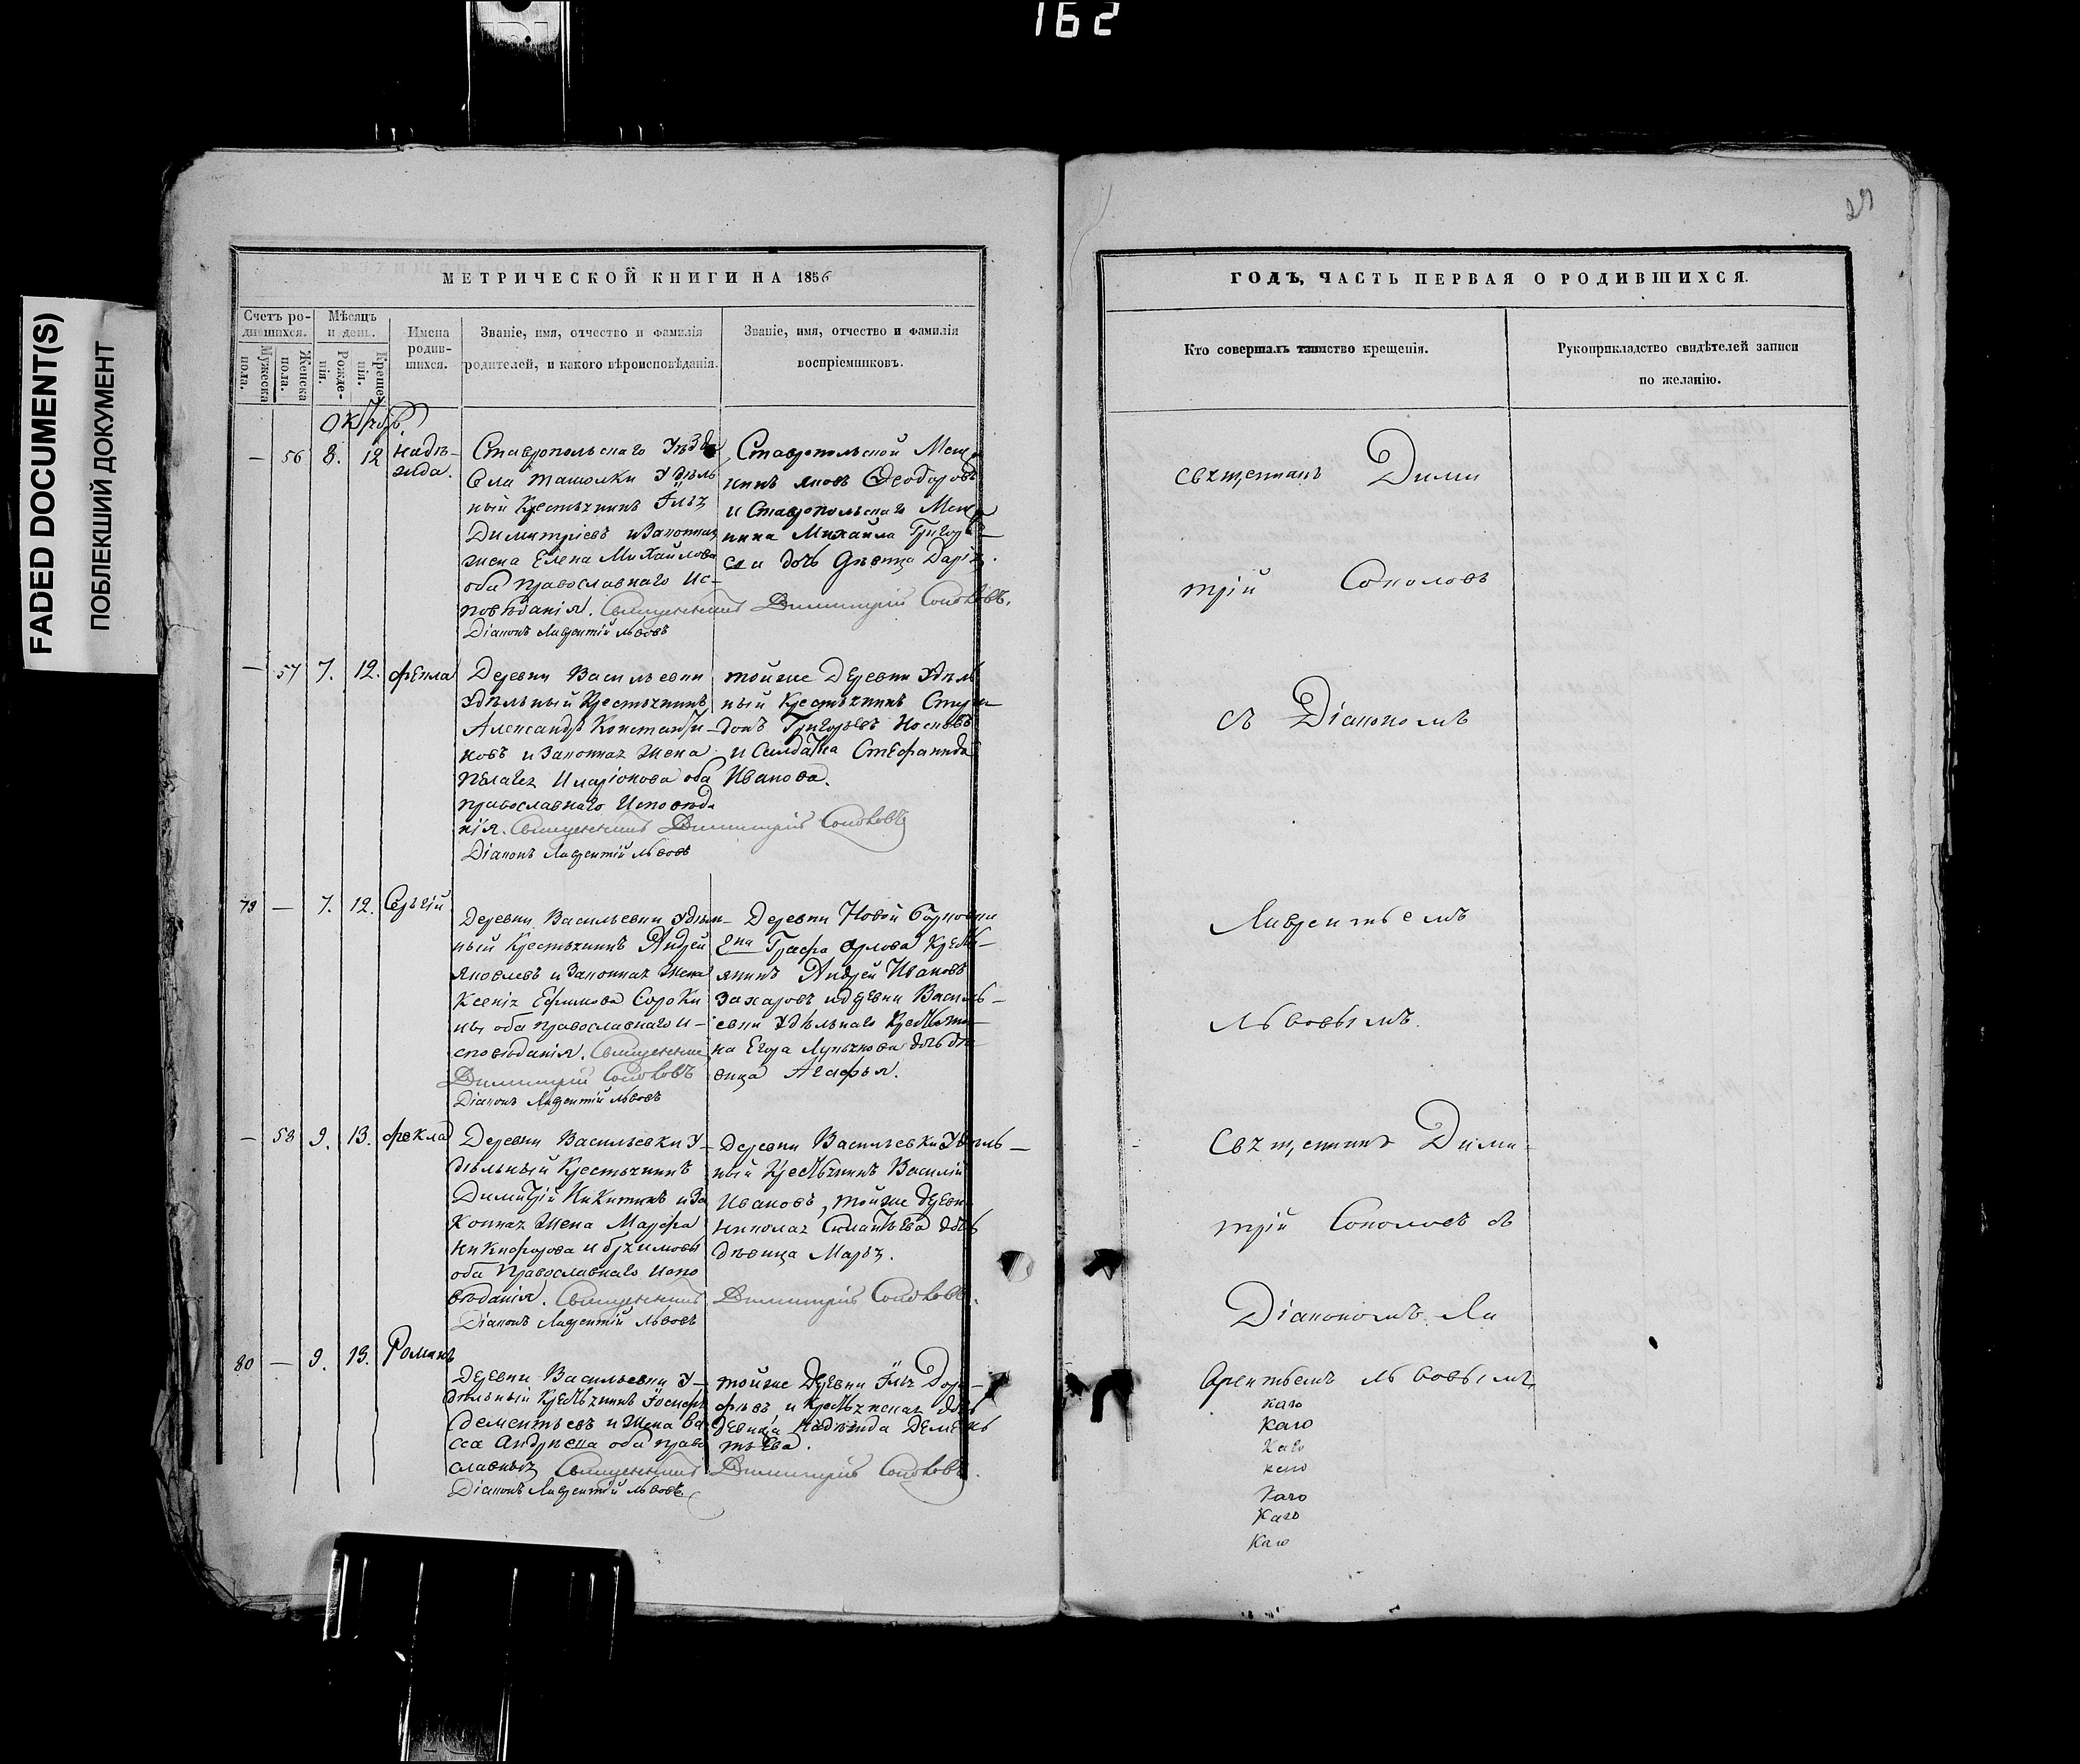 162
FADED DOCUMENT(S)
ПОБЛЕКШИЙ ДОКУМЕНТ
МЕТРИЧЕСКОЙ КНИГИ НА 1856
Счетъ ро-
дившихся.
Мужеска
пола.
Женска
пола.
Мѣсяцъ
и день.
Рожде-
нія.
Креще-
нія.
Имена
родив-
шихся.
Званіе, имя, отчество и фамилія
родителей, и какого вѣроисповѣданія.
Званіе, имя, отчество и фамилія
воспріемниковъ.
— 56 8. 12 Надѣ-
жда.
Ставропольскаго Уѣзда
Села Ташолки Удѣль
ный Крестьянинъ Илья
Димитріевъ и Законная
жена Елена Михайлова
оба православнаго Ис-
повѣданія. Священникъ Димитрій Соколовъ.
Діаконъ Лаврентій Львовъ
Ставропольской Мещ
нинъ Яковъ Феодоровъ
и Ставропольскаго Меща
нина Михаила Григорь
дочь Дѣвица Дарія.
— 57 7. 12. Фекла
Деревни Васильевки
Удѣльный Крестьянинъ
Александръ Константи-
новъ и Законная Жена
Пелагея Иларіонова оба
православнаго Исповѣда
нія. Священникъ Димитрій Соколовъ
Діаконъ Лаврентій Львовъ
тойже Деревни Удѣль
ный Крестьянинъ Спири-
донъ Григорьевъ Носковъ
и Салдатка Стефанида
Иванова.
79 — 7. 12. Сергій
Деревни Васильевки Удѣль-
ный Крестьянинъ Андрей
Яковлевъ и Законная Жена
Ксенія Ефимова Сороки
ны оба православнаго И-
сповѣданія. Священник
Димитрій Соколовъ
Діаконъ Лаврентій Львовъ
Деревни Новой
Графа Орлова Кресть-
янинъ Андрей Ивановъ
Захаровъ и деревни Василь-
евки Удѣльнаго Крестьяни-
на Егора дочь дѣ
вица Агафья.
— 58 9. 13. Фекла
Деревни Васильевки У-
дѣльный Крестьянинъ
Димитрій Никитинъ и За
конная Жена Марфа
Никифорова
оба Православнаго Испо
вѣданія. Священникъ Димитрій Соколовъ.
Діаконъ Лаврентій Львовъ
Деревни Васильевки Удѣль-
ный Крестьянинъ Василій
Ивановъ, тойже деревни
Николая дочь
дѣвица Марья.
80 — 9. 13. Романъ
Деревни Васильевки У-
дѣльный Крестьянинъ Іосифъ
Дементьевъ и Жена Ва
сса Андреева оба право
славныя Священникъ Димитрій Соколовъ.
Діаконъ Лаврентій Львовъ
тойже Деревни Илья Доро-
фѣевъ, и Крестьянская дочь
Девица Надѣжда Демень
тьева.
ГОДЪ, ЧАСТЬ ПЕРВАЯ О РОДИВШИХСЯ.
Кто совершалъ таинство крещенія.
Рукоприкладство свидѣтелей записи
по желанію.
Священникъ Дими
трій Соколовъ
съ Діакономъ
Лаврентьемъ
Львовымъ.
Священникъ Дими-
трій Соколовъ съ
Діакономъ Ла
врентьемъ Львовымъ
каго
каго
каго
каго
каго
каго
каго